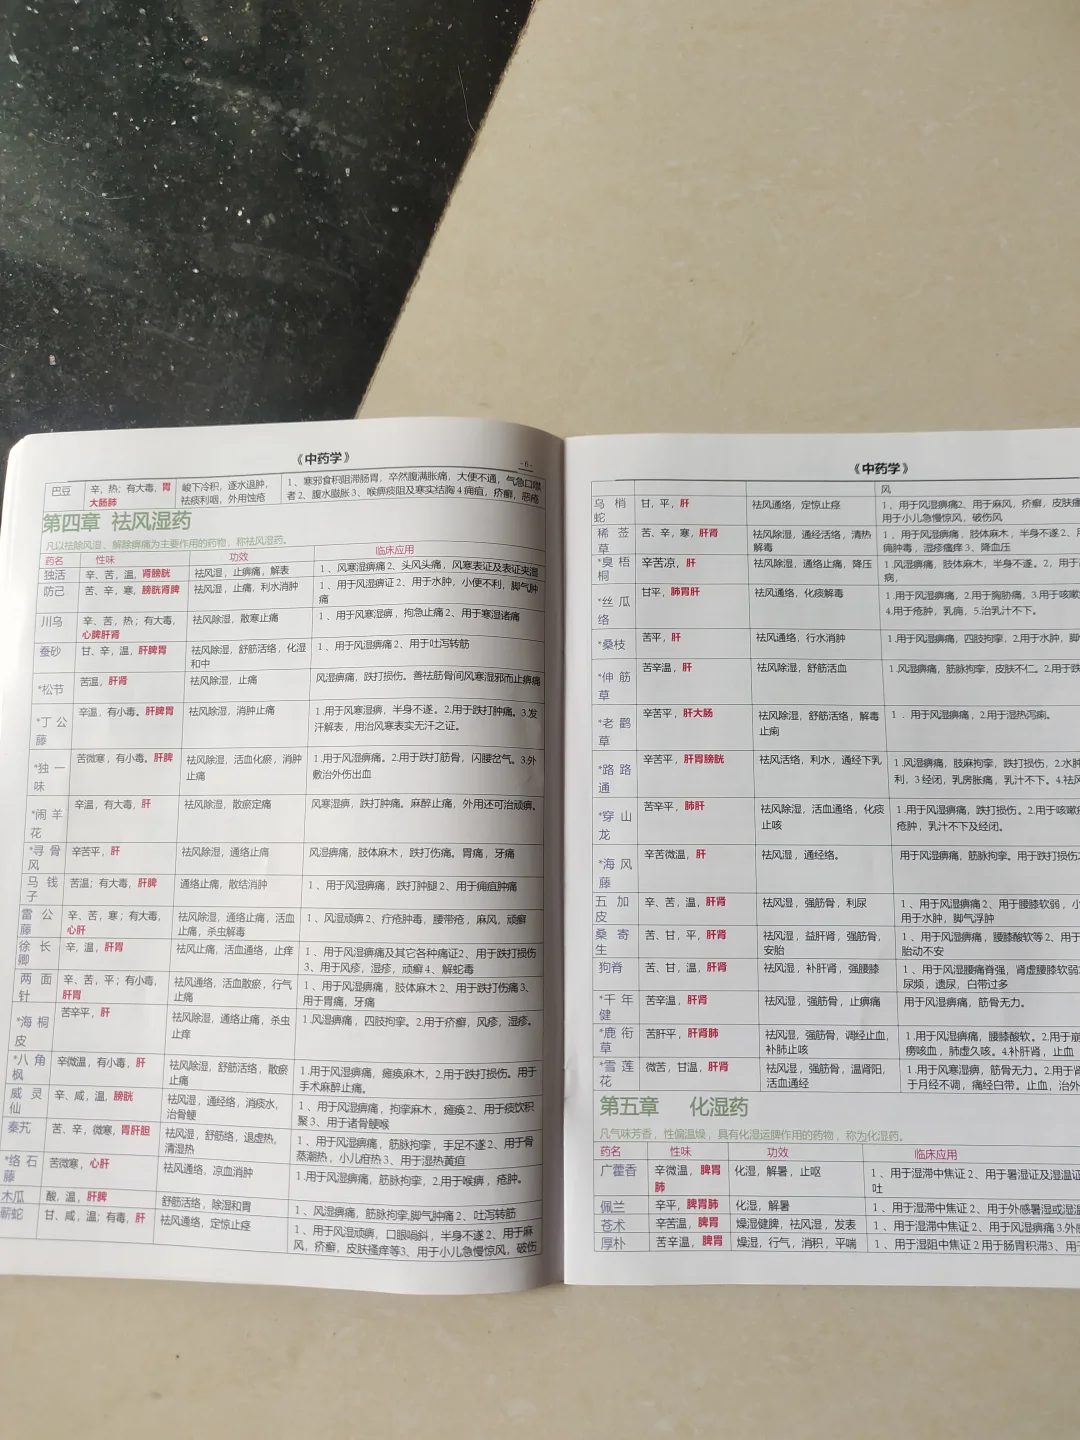 《中药学》
-6-
巴豆 辛，热；有大毒，胃 峻下冷积，逐水退肿， 1、寒邪食积阻滞肠胃，卒然腹满胀痛，大便不通，气急口噤
大肠肺 祛痰利咽，外用蚀疮 者 2、腹水臌胀 3、喉痹痰阻及寒实结胸 4 痈疽，疥癣，恶疮
第四章 祛风湿药
凡以祛除风湿，解除痹痛为主要作用的药物，称祛风湿药。
药名 性味 功效 临床应用
独活 辛、苦，温，肾膀胱 祛风湿，止痹痛，解表 1、风寒湿痹痛 2、头风头痛，风寒表证及表证夹湿
防己 苦、辛，寒，膀胱肾脾 祛风湿，止痛，利水消肿 1、用于风湿痹证 2、用于水肿，小便不利，脚气肿
痛
川乌 辛，苦，热；有大毒， 祛风除湿，散寒止痛 1、用于风寒湿痹，拘急止痛 2、用于寒湿诸痛
心脾肝肾
蚕砂 甘、辛，温，肝脾胃 祛风除湿，舒筋活络，化湿 1、用于风湿痹痛 2、用于吐泻转筋
和中
*松节 苦温，肝肾 祛风除湿，止痛 风湿痹痛，跌打损伤。善祛筋骨间风寒湿邪而止痹痛
*丁公 辛温，有小毒。肝脾胃 祛风除湿，消肿止痛 1.用于风寒湿痹，半身不遂。2.用于跌打肿痛。3.发
藤 汗解表，用治风寒表实无汗之证。
*独一 苦微寒，有小毒。肝脾 祛风除湿，活血化瘀，消肿 1.用于风湿痹痛。2.用于跌打筋骨，闪腰岔气。3.外
味 止痛 敷治外伤出血
*闹羊 辛温，有大毒，肝 祛风除湿，散瘀定痛 风寒湿痹，跌打肿痛。麻醉止痛，外用还可治顽痹。
花
*寻骨 辛苦平，肝 祛风除湿，通络止痛 风湿痹痛，肢体麻木，跌打伤痛。胃痛，牙痛
风
马钱 苦温；有大毒，肝脾 通络止痛，散结消肿 1、用于风湿痹痛，跌打肿腿 2、用于痈疽肿痛
子
雷公 辛、苦，寒；有大毒， 祛风除湿，通络止痛，活血 1、风湿顽痹 2、疔疮肿毒，腰带疮，麻风，顽癣
藤 心肝 止痛，杀虫解毒
徐长 辛，温，肝胃 祛风止痛，活血通络，止痒 1、用于风湿痹痛及其它各种痛证 2、用于跌打损伤
卿 3、用于风疹，湿疹，顽癣 4、解蛇毒
两面 辛、苦，平；有小毒， 祛风通络，活血散瘀，行气 1、用于风湿痹痛，肢体麻木 2、用于跌打伤痛 3、
针 肝胃 止痛 用于胃痛，牙痛
*海桐 苦辛平，肝 祛风除湿，通络止痛，杀虫 1.风湿痹痛，四肢拘挛。2.用于疥癣，风疹，湿疹。
皮 止痒
*八角 辛微温，有小毒，肝 祛风除湿，舒筋活络，散瘀 1.用于风湿痹痛，瘫痪麻木，2.用于跌打损伤。用于
枫 止痛 手术麻醉止痛。
威灵 辛、咸，温，膀胱 祛风湿，通经络，消痰水， 1、用于风湿痹痛，拘挛麻木，瘫痪 2、用于痰饮积
仙 治骨鲠 聚 3、用于诸骨鲠喉
秦艽 苦、辛，微寒，胃肝胆 祛风湿，舒筋络，退虚热， 1、用于风湿痹痛，筋脉拘挛，手足不遂 2、用于骨
清湿热 蒸潮热，小儿疳热 3、用于湿热黄疸
*络石 苦微寒，心肝 祛风通络，凉血消肿 1.用于风湿痹痛，筋脉拘挛，2.用于喉痹，疮肿。
藤
木瓜 酸，温，肝脾 舒筋活络，除湿和胃 1、风湿痹痛，筋脉拘挛,脚气肿痛 2、吐泻转筋
蕲蛇 甘、咸，温；有毒，肝 祛风通络，定惊止痉 1、用于风湿顽痹，口眼喎斜，半身不遂 2、用于麻
风，疥癣，皮肤搔痒等3、用于小儿急慢惊风，破伤
《中药学》
风
乌梢 甘，平，肝 祛风通络，定惊止痉 1、用于风湿痹痛2、用于麻风，疥癣，皮肤瘙
蛇 用于小儿急慢惊风，破伤风
稀莶 苦、辛，寒，肝肾 祛风除湿，通经活络，清热 1、用于风湿痹痛，肢体麻木，半身不遂 2、用
草 解毒 痈肿毒，湿疹瘙痒 3、降血压
*臭梧 辛苦凉，肝 祛风除湿，通络止痛，降压 1.风湿痹痛，肢体麻木，半身不遂。2，用于
桐 病，
*丝瓜 甘平，肺胃肝 祛风通络，化痰解毒 1.用于风湿痹痛，2.用于胸胁痛，3.用于咳嗽
络 4.用于疮肿，乳痈，5.治乳汁不下。
*桑枝 苦平，肝 祛风通络，行水消肿 1.用于风湿痹痛，四肢拘挛，2.用于水肿，脚
*伸筋 苦辛温，肝 祛风除湿，舒筋活血 1.风湿痹痛，筋脉拘挛，皮肤不仁。2.用于跌
草
*老鹳 辛苦平，肝大肠 祛风除湿，舒筋活络，解毒 1．用于风湿痹痛，2.用于湿热泻痢。
草 止痢
*路路 辛苦平，肝胃膀胱 祛风活络，利水，通经下乳 1.风湿痹痛，肢麻拘挛，跌打损伤，2.水肿
通 利，3 经闭，乳房胀痛，乳汁不下。4.祛风
*穿山 苦辛平，肺肝 祛风除湿，活血通络，化痰 1.用于风湿痹痛，跌打损伤。2.用于咳嗽
龙 止咳 疮肿，乳汁不下及经闭。
*海风 辛苦微温，肝 祛风湿，通经络。 用于风湿痹痛，筋脉拘挛。用于跌打损伤
藤
五加 辛、苦，温，肝肾 祛风湿，强筋骨，利尿 1、用于风湿痹痛 2、用于腰膝软弱，小
皮 用于水肿，脚气浮肿
桑寄 苦、甘，平，肝肾 祛风湿，益肝肾，强筋骨， 1、用于风湿痹痛，腰膝酸软等 2、用于
生 安胎 胎动不安
狗脊 苦、甘，温，肝肾 祛风湿，补肝肾，强腰膝 1、用于风湿腰痛脊强，肾虚腰膝软弱
尿频，遗尿，白带过多
*千年 苦辛温，肝肾 祛风湿，强筋骨，止痹痛 用于风湿痹痛，筋骨无力。
健
*鹿衔 苦肝平，肝肾肺 祛风湿，强筋骨，调经止血， 1.用于风湿痹痛，腰膝酸软。2.用于崩
草 补肺止咳 痨咳血，肺虚久咳。4.补肝肾，止血
*雪莲 微苦，甘温，肝肾 祛风湿，强筋骨，温肾阳， 1.用于风寒湿痹，筋骨无力。2.用于肾
花 活血通经 于月经不调，痛经白带。止血，治外
第五章 化湿药
凡气味芳香，性偏温燥，具有化湿运脾作用的药物，称为化湿药。
药名 性味 功效 临床应用
广藿香 辛微温，脾胃 化湿，解暑，止呕 1、用于湿滞中焦证 2、用于暑湿证及湿温证
肺 吐
佩兰 辛平，脾胃肺 化湿，解暑 1、用于湿滞中焦证 2、用于外感暑湿或湿温
苍术 辛苦温，脾胃 燥湿健脾，祛风湿，发表 1、用于湿滞中焦证 2、用于风湿痹痛 3.外感
厚朴 苦辛温，脾胃 燥湿，行气，消积，平喘 1、用于湿阻中焦证 2 用于肠胃积滞3、用于